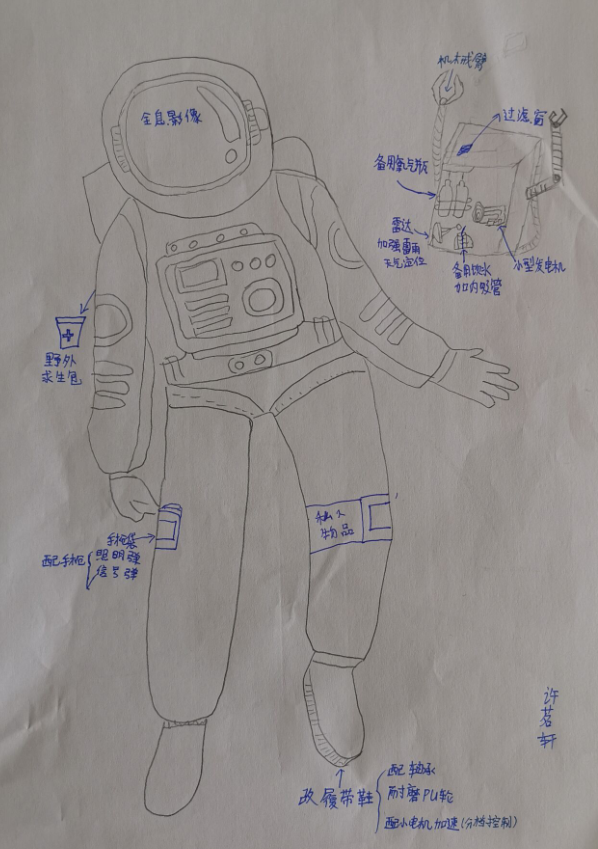 机械臂
全息影像
过滤窗
备用氧气瓶
雷达
加强雷雨
天气定位
备用饮水
加内吸管
小型发电机
野外
求生包
手枪袋
配手枪
照明弹
信号弹
私人
物品
改履带鞋
配轴承
耐磨PU轮
配小电机加速(分档控制)
许茗轩